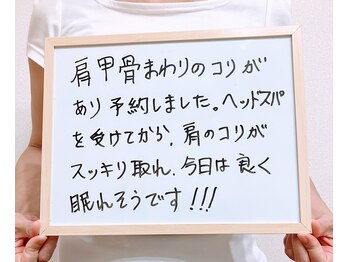 肩甲骨まわりのコリが
あり予約しました。ヘッドスパ
を受けてから、肩のコリが
スッキリ取れ、今日は良く
眠れそうです!!!